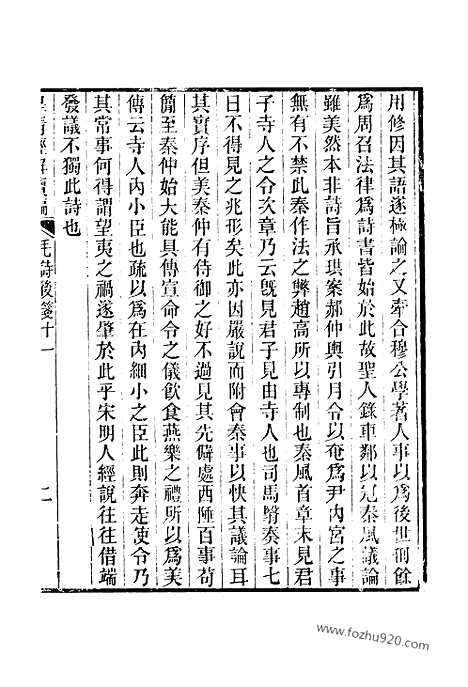 用修因其語遂極論之又牽合穆公學著人事以爲後世刑餘
爲周召法律爲詩書皆始於此故聖人錄車鄰以冠秦風議論
雖美然本非詩旨承珙案郝仲輿引月令以奄爲尹內宮之事
無有不禁此秦作法之弊趙高所以專制也秦風首章未見君
子寺人之令次章乃云旣見君子見由寺人也司馬矯奏事七
日不得見之兆形矣此亦因嚴說而附會秦事以快其議論耳
其實序但美秦仲有侍御之好不過見其先僻處西陲百事苟
簡至秦仲始大能具傳宣命令之儀飮食燕樂之禮所以爲美
傳云寺人內小臣也疏以爲在內細小之臣此則奔走使令乃
其常事何得謂望夷之禍遂肇於此乎宋明人經說往往借端
發議不獨此詩也
皇清經解續編
毛詩後箋十一
二
www.fozhu920.com